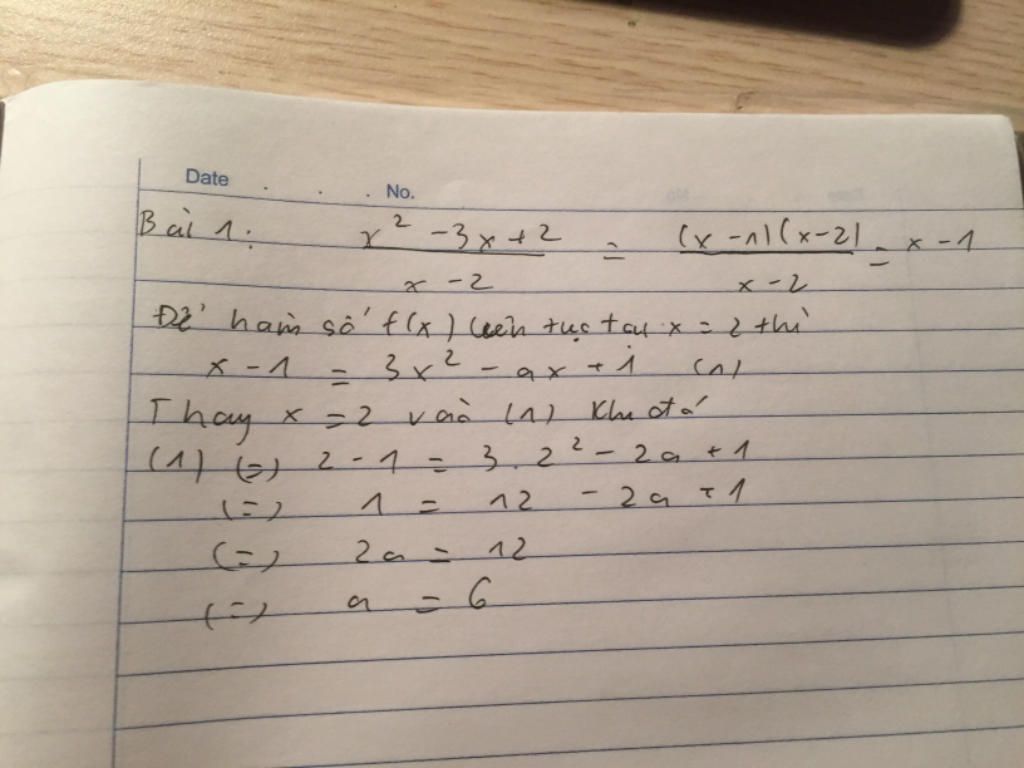 Date . . . No.
Bài 1: x² - 3x + 2 / x - 2 = (x - 1)(x - 2) / x - 2 = x - 1
Để hàm số f(x) liên tục tại x = 2 thì
x - 1 = 3x² - ax + 1 (1)
Thay x = 2 vào (1) khi đó
(1) (=) 2 - 1 = 3 . 2² - 2a + 1
(=) 1 = 12 - 2a + 1
(=) 2a = 12
(=) a = 6